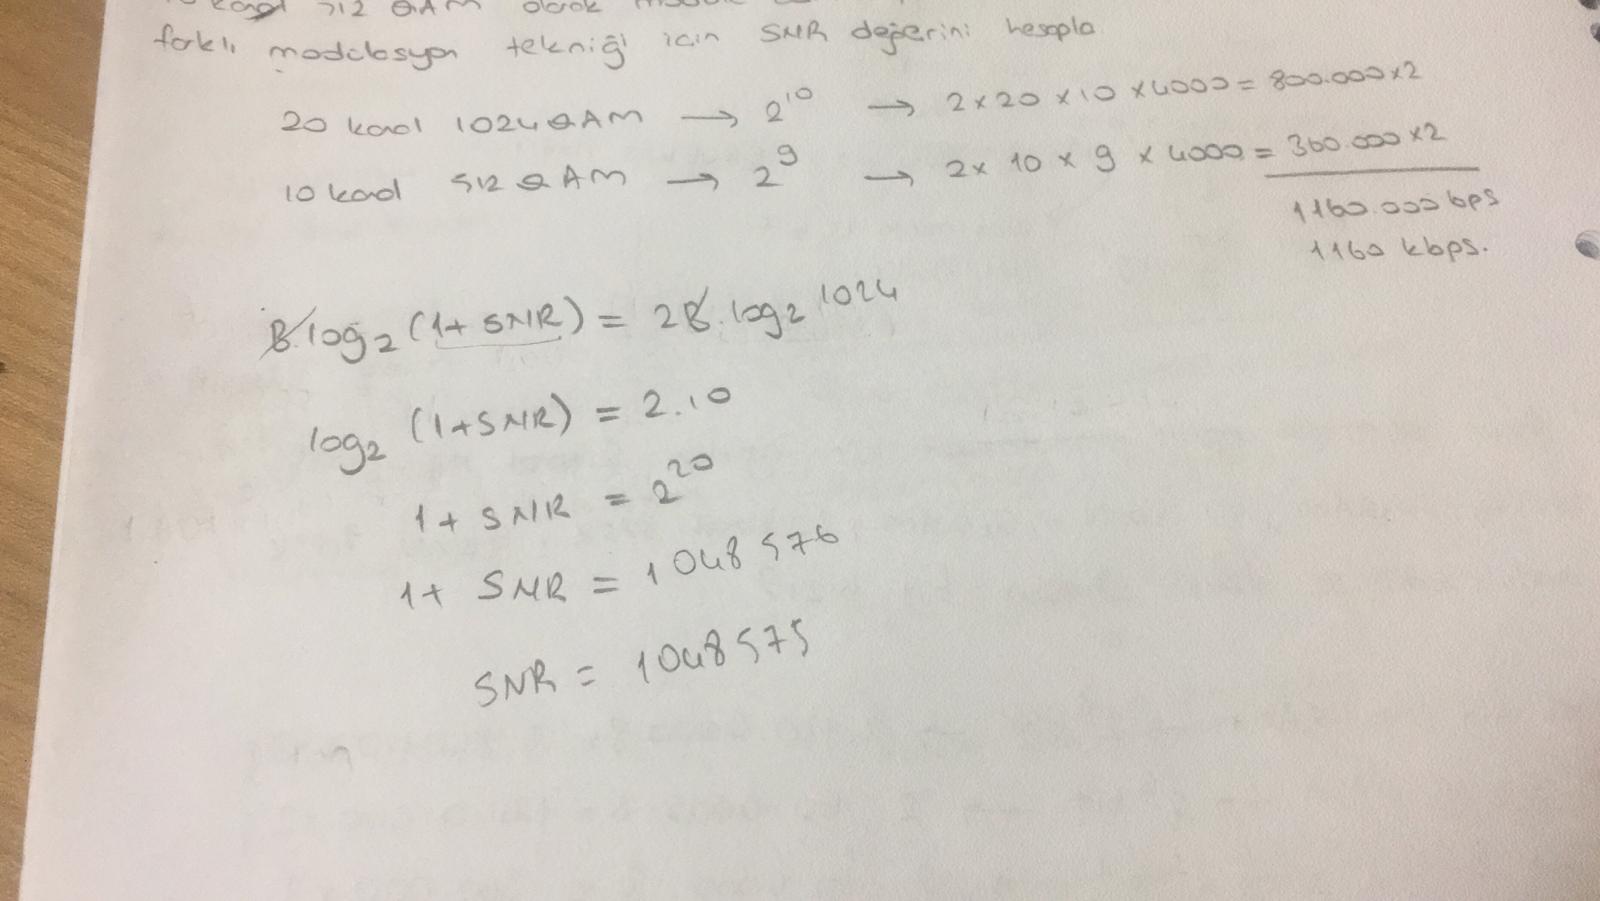 kanal 512 QAM olarak
farklı modülasyon tekniği için SNR değerini hesapla
20 kanal 1024 QAM → 2^10 → 2 x 20 x 10 x 4000 = 800.000 x2
10 kanal 512 QAM → 2^9 → 2 x 10 x 9 x 4000 = 360.000 x2
1160.000 bps
1160 kbps.
B.log2 (1+ SNR) = 2B.log2 1024
log2 (1+SNR) = 2.10
1+ SNR = 2^20
1+ SNR = 1048576
SNR = 1048575